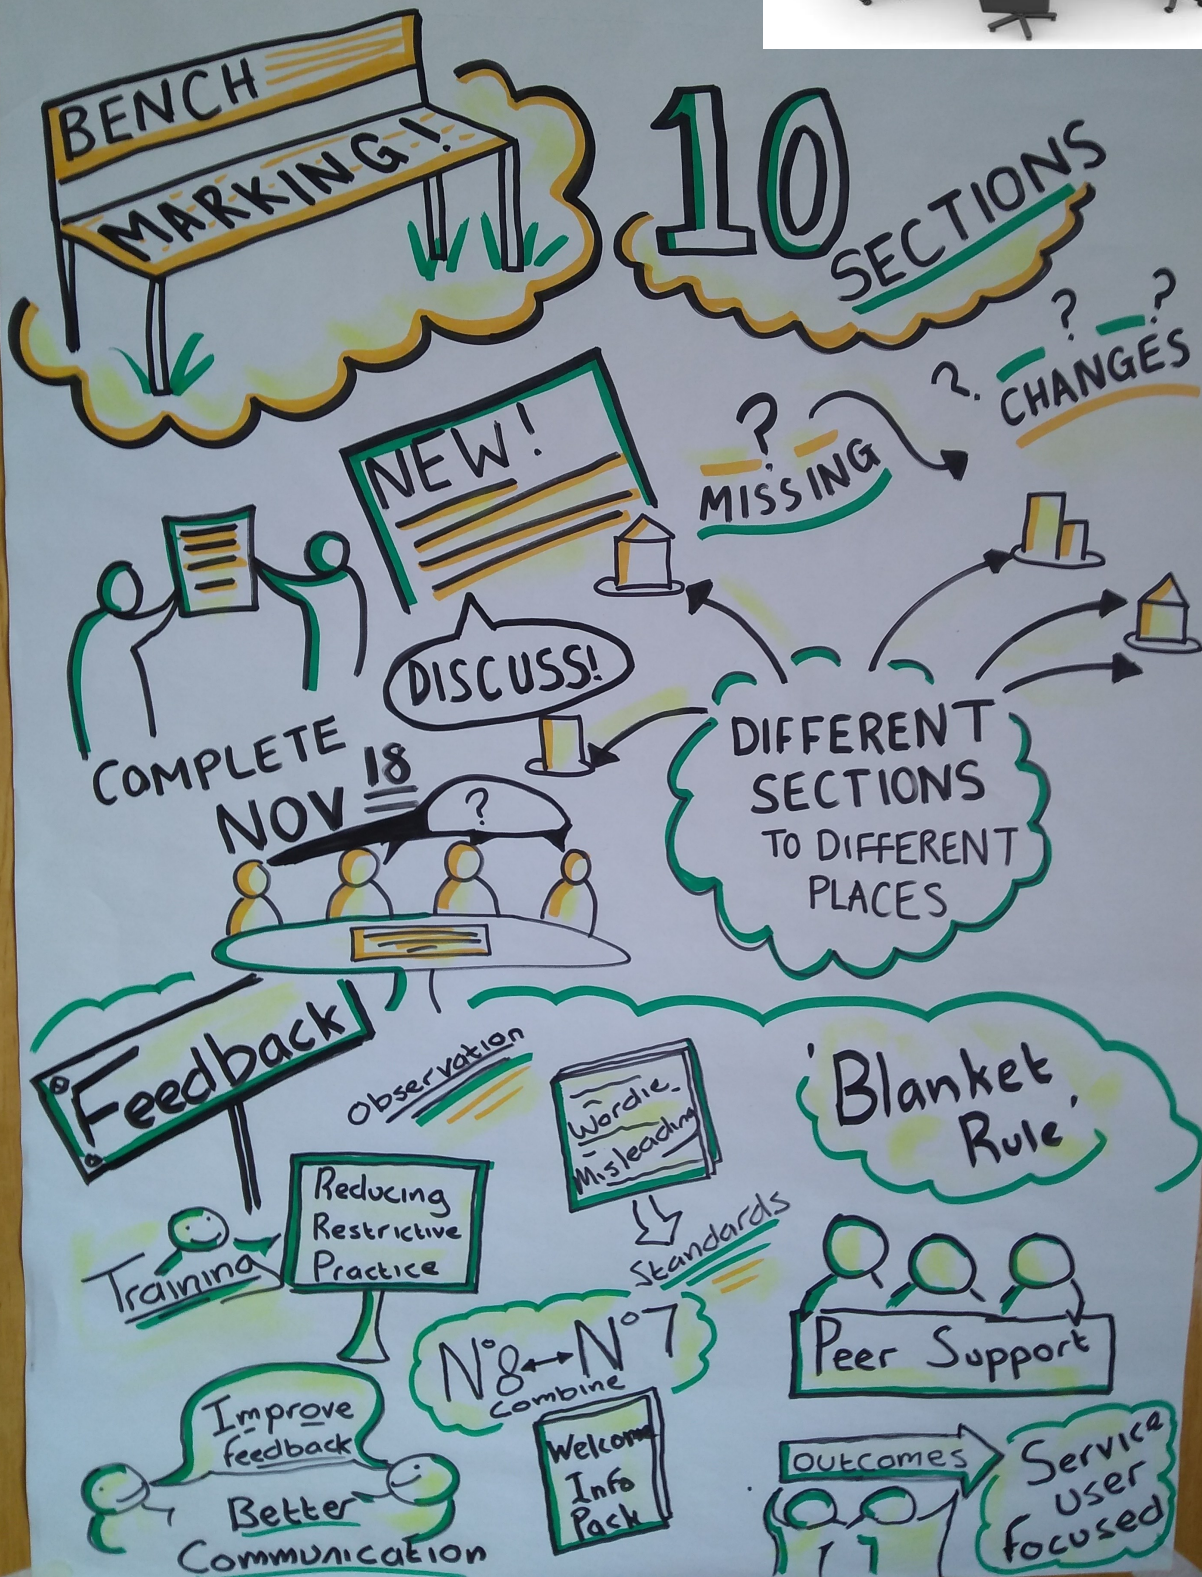 BENCH
MARKING!
10
SECTIONS
? ?
? CHANGES
NEW!
?
MISSING
DISCUSS!
COMPLETE
NOV 18
?
DIFFERENT
SECTIONS
TO DIFFERENT
PLACES
Feedback
Observation
Wordie
Misleading
'Blanket
Rule'
Reducing
Restrictive
Practice
Training
Standards
Nº8 ↔ Nº7
Combine
Peer Support
Improve
feedback
Better
Communication
Welcome
Info
Pack
OUTCOMES
Service
user
focused